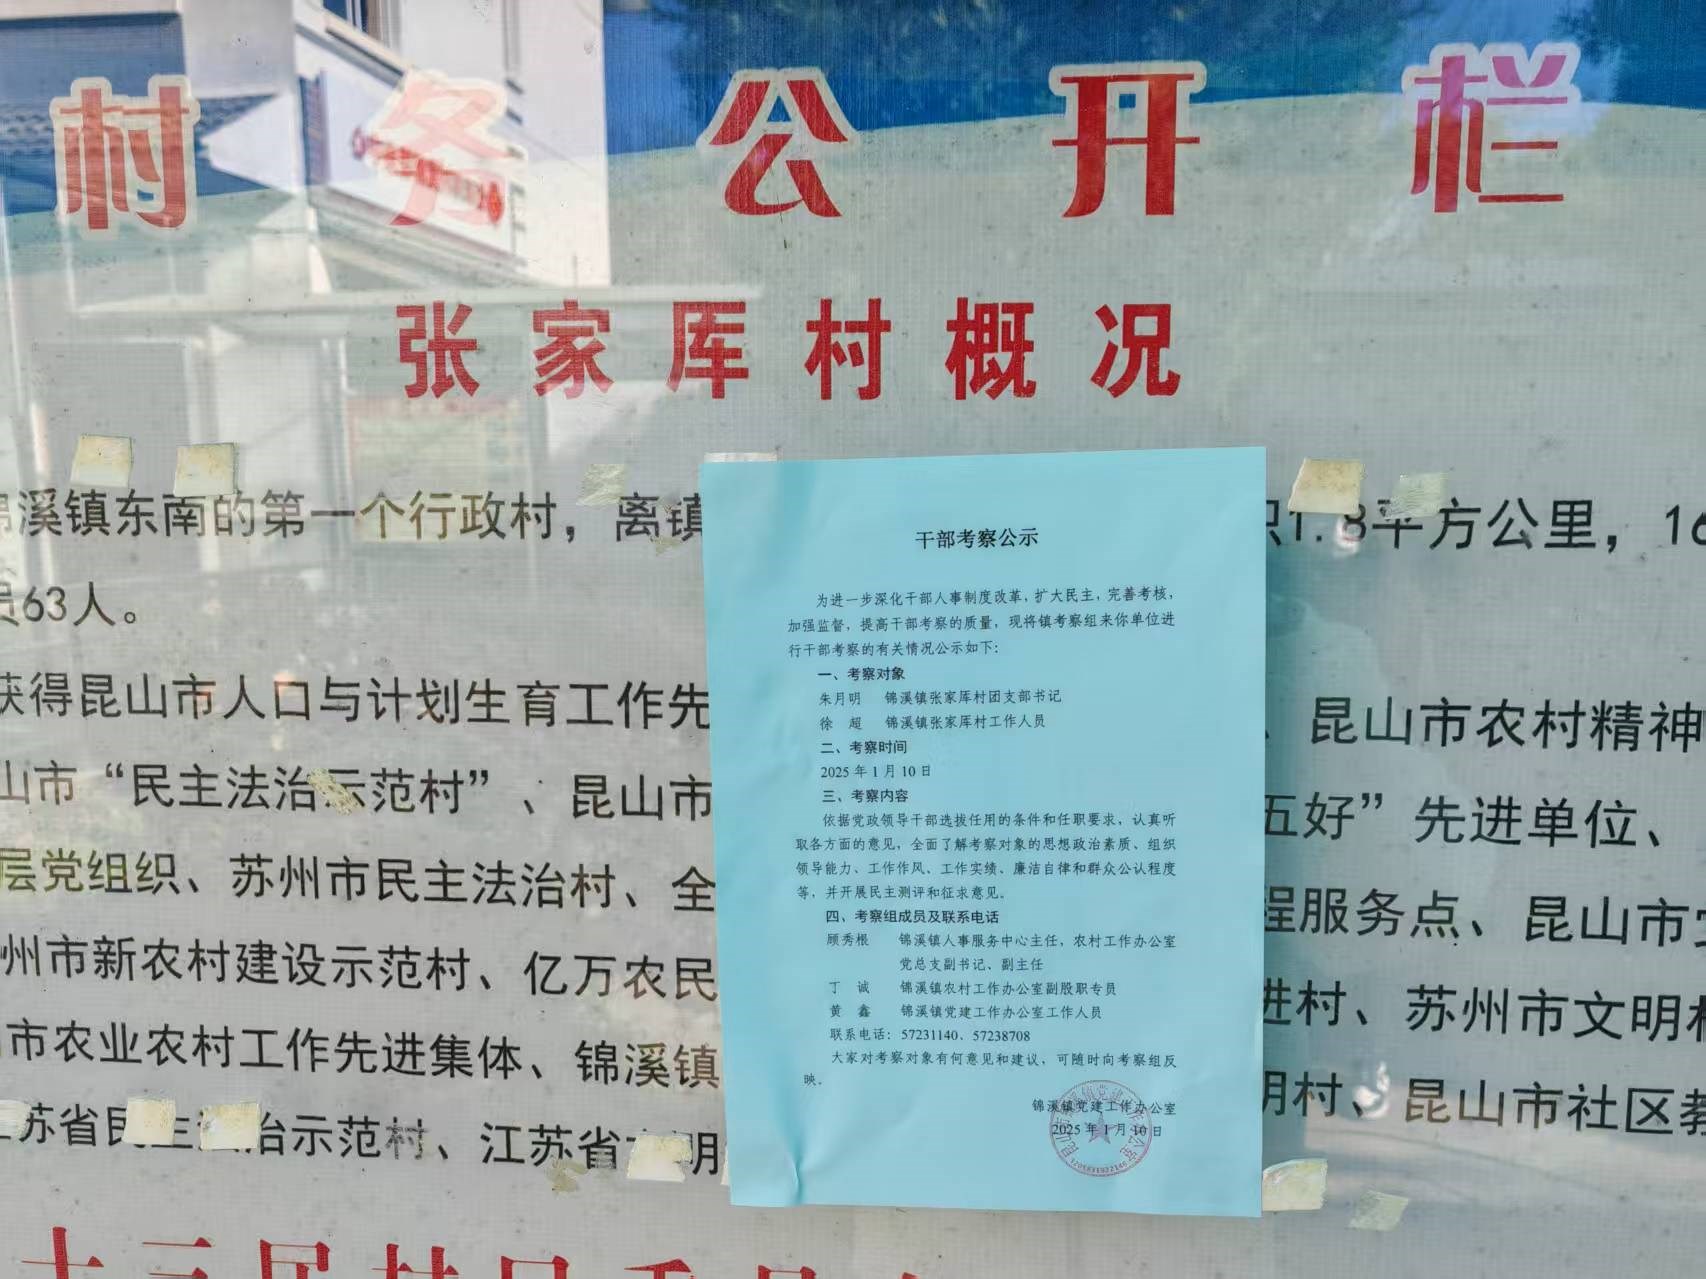 村务公开栏
张家厍村概况
溪镇东南的第一个行政村，离镇
1.8平方公里，16
员63人。
获得昆山市人口与计划生育工作先
、昆山市农村精神
山市“民主法治示范村”、昆山市
五好”先进单位、
层党组织、苏州市民主法治村、全
程服务点、昆山市
州市新农村建设示范村、亿万农民
进村、苏州市文明
市农业农村工作先进集体、锦溪镇
明村、昆山市社区教
江苏省民主法治示范村、江苏省文明
干部考察公示
为进一步深化干部人事制度改革，扩大民主，完善考核，
加强监督，提高干部考察的质量，现将镇考察组来你单位进
行干部考察的有关情况公示如下：
一、考察对象
朱月明 锦溪镇张家厍村团支部书记
徐 超 锦溪镇张家厍村工作人员
二、考察时间
2025年1月10日
三、考察内容
依据党政领导干部选拔任用的条件和任职要求，认真听
取各方面的意见，全面了解考察对象的思想政治素质、组织
领导能力、工作作风、工作实绩、廉洁自律和群众公认程度
等，并开展民主测评和征求意见。
四、考察组成员及联系电话
顾秀根 锦溪镇人事服务中心主任，农村工作办公室
党总支副书记、副主任
丁 诚 锦溪镇农村工作办公室副股职专员
黄 鑫 锦溪镇党建工作办公室工作人员
联系电话：57231140、57238708
大家对考察对象有何意见和建议，可随时向考察组反
映。
锦溪镇党建工作办公室
2025年1月10日